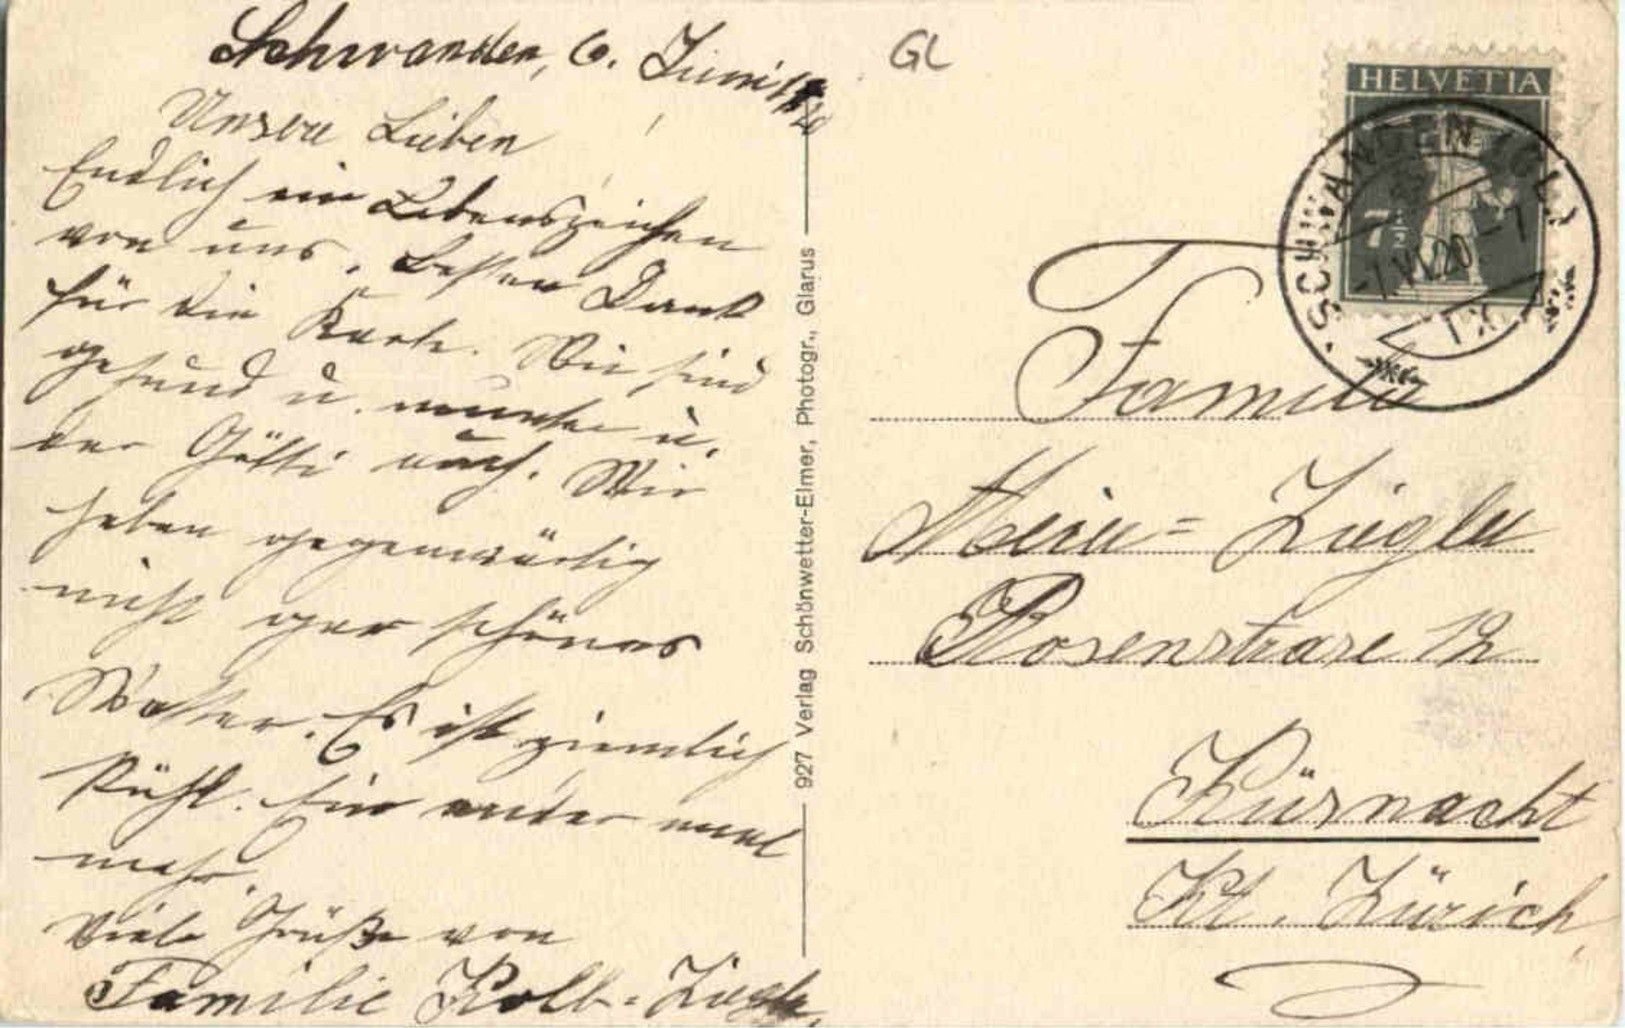 Schwanden, 6. Juni 1920
Unsere Lieben
Endlich ein Lebenszeichen
von uns. Besten Dank
für die Karte. Wir sind
gesund u. munter u.
der Götti auch. Wir
haben gegenwärtig
nicht gar schönes
Wetter. Es ist ziemlich
kühl. Ein ander mal
mehr.
Viele Grüße von
Familie Kolb-Ziegler.
927 Verlag Schönwetter-Elmer, Photogr., Glarus
GL
HELVETIA
7½
SCHWANDEN (GL.)
-7.VI.20.-7
IX
Familie
Meier=Ziegler
Rosenstrase 12
Küsnacht
Kt. Zürich